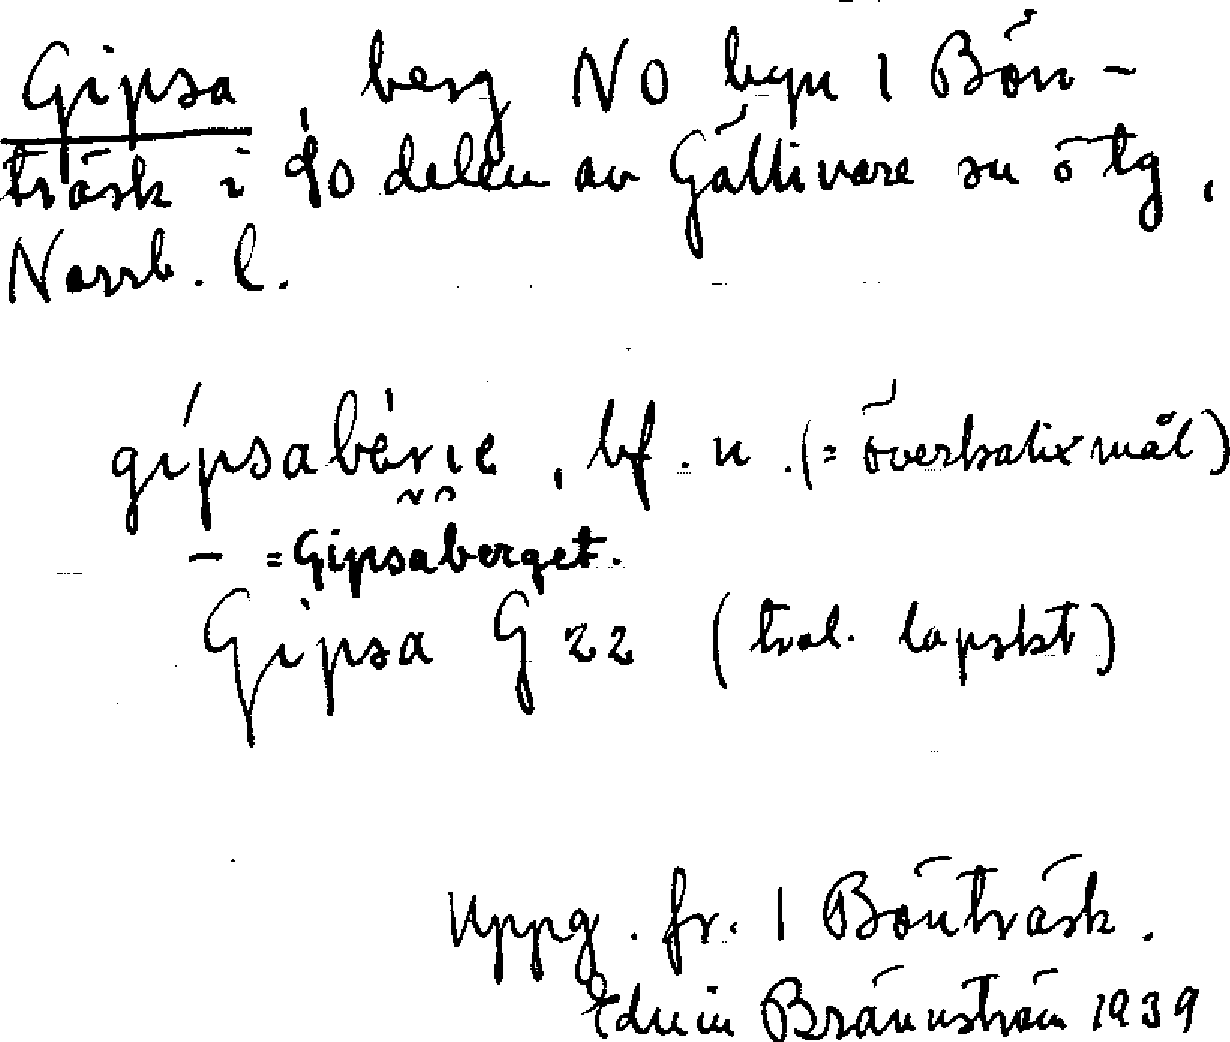 Gipsa, berg NO byn 1 Bön-
träsk i So delen av Gällivare sn ö tg,
Norrb. l.
gípsabèrie, bf. n. (= överkalixmål)
– = Gipsaberget.
Gipsa G 22 (trol. lapskt)
Uppg. fr. 1 Bönträsk.
Edvin Brännström 1939